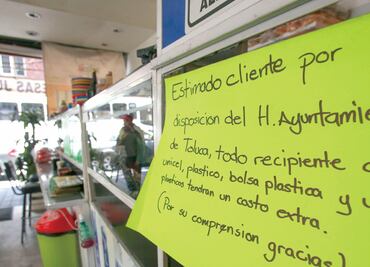 Estimado cliente por
disposicion del H. Ayuntamie
de Toluca, todo recipiente
unicel, plastico, bolsa plastica y
plasticos tendran un costo extra.
(Por su comprension gracias)